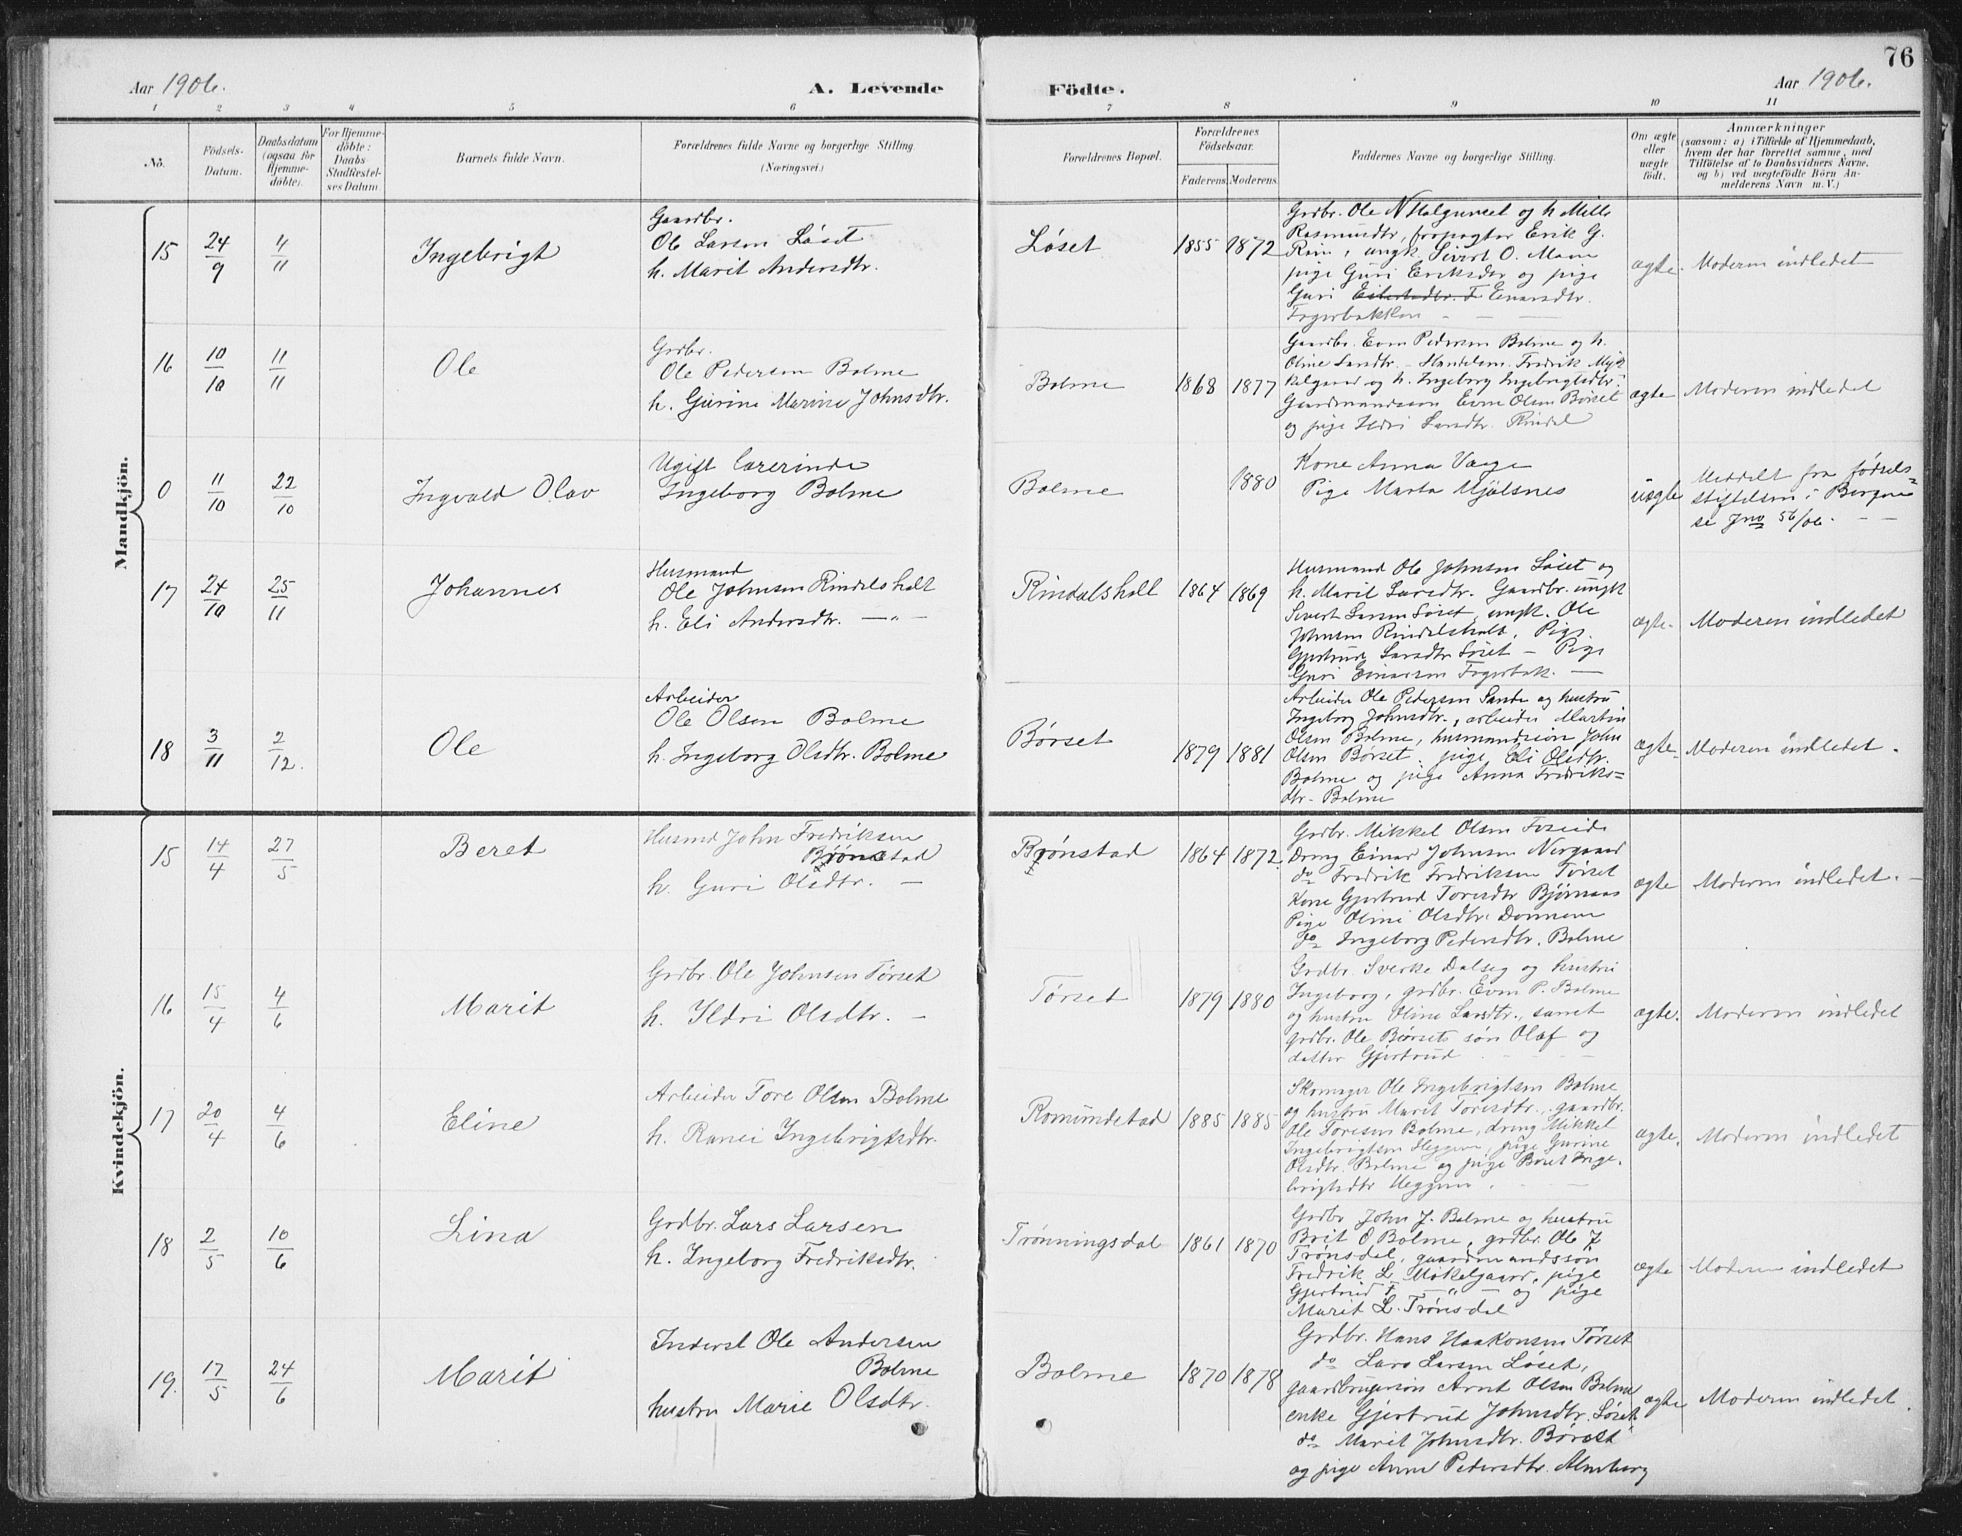 76
Aar 1906.
A. Levende Födte.
Aar 1906.
1 2 3 4 5 6 7 8 9 10 11
No.
Födsels-Datum.
Daabsdatum (ogsaa for Hjemmedöbte).
For Hjemmedöbte: Daabs Stadfæstelses Datum
Barnets fulde Navn.
Forældrenes fulde Navne og borgerlige Stilling. (Næringsvei.)
Forældrenes Bopæl.
Forældrenes Födselsaar.
Faderens. Moderens.
Faddernes Navne og borgerlige Stilling.
Om ægte eller uægte födt.
Anmærkninger
(saasom: a) i Tilfælde af Hjemmedaab,
hvem der har forrettet samme, med
Tilföielse af to Daabsvidners Navne,
og b) ved uægtefödte Börn An-
melderens Navn m. V.)
Mandkjön.
15 24/9 4/11 Ingebrigt
Gaardbr.
Ole Larsen Løset
h. Marit Andersdtr.
Løset 1855 1872
Grdbr. Ole N Halgunset og h Mille
Rasmusdtr, forpagter Erik G.
Rim, ungk. Sivert O. Moen
pige Guri Eriksdtr og pige
Guri Einarsdtr.
Fagerbakken
ægte. Moderen indledet
16 10/10 11/11 Ole
Grdbr.
Ole Pedersen Bolme
h. Gurine Marine Johnsdtr.
Bolme 1868 1877
Gaardbr. Even Pedersen Bolme og h.
Oline Larsdtr. Handelsm. Fredrik Myk
kelgaard og h. Ingeborg Ingebrigtsdtr.
Gaardmandssøn Even Olsen Børset
og pige Ildri Larsdtr. Rindal
ægte Moderen indledet
0 11/10 22/10 Ingvald Olav
Ugift lærerinde
Ingeborg Bolme
Bolme 1880
Kone Anna Vaage
Pige Marta Mjølsnes
uægte
Meddelt fra fødsels=
stiftelsen i Bergen
se Jno 56/06.
17 24/10 25/11 Johannes
Husmand
Ole Johnsen Rindalshall
h. Eli Andersdtr. —"—
Rindalshall 1864 1869
Husmand Ole Johnsen Løset og
h. Marit Larsdtr. Gaardbr. ungk
Sivert Larsen Løset, ungk. Ole
Johnsen Rindalshall. Pige
Gjertrud Larsdtr Løset – Pige
Guri Einarsen Fagerbak.
ægte. Moderen indledet
18 3/11 2/12. Ole
Arbeider
Ole Olsen Bolme
h. Ingeborg Olsdtr. Bolme
Børset 1879 1881
Arbeider Ole Pedersen Sande og hustru
Ingeborg Johnsdtr., arbeider Martin
Olsen Bolme, husmandssøn John
Olsen Børset, pige Eli Olsdtr.
Bolme og pige Anna Fredriks=
dtr. Bolme
ægte. Moderen indledet.
Kvindekjön.
15 14/4 27/5 Beret
Husmd John Fredriksen
Brønstad
h. Guri Olsdtr. —
Brønstad 1864 1872.
Grdbr. Mikkel Olsen Foseide
Dreng Einar Johnsen Norgaard
do Fredrik Fredriksen Tørset
Kone Gjertrud Toresdtr Bjørnaas
Pige Oline Olsdtr.
do Ingeborg Pedersdtr. Bolme
ægte Moderen indledet.
16 15/4 4/6 Marit
Grdbr. Ole Johnsen Tørset
h. Ildri Olsdtr. —
Tørset 1879 1880
Grdbr. Sverke Dalseg og hustru
Ingeborg, grdbr. Even P. Bolme
og hustru Oline Larsdtr., samt
grdbr. Ole Børsets søn Olaf og
datter Gjertrud
ægte. Moderen indledet
17 20/4 4/6 Eline
Arbeider Tore Olsen Bolme
h. Ranei Ingebrigtsdtr.
Romundstad 1885 1885
Skomager Ole Ingebrigtsen Bolme
og hustru Marit Toresdtr., gaardbr.
Ole Toresen Bolme, dreng Mikkel
Ingebrigtsen Heggem, pige Gurine
Olsdtr. Bolme og pige Beret Inge-
brigtsdtr Heggem.
ægte. Moderen indledet
18 2/5 10/6 Lina
Grdbr. Lars Larsen
h. Ingeborg Fredriksdtr.
Trønningsdal 1861 1870
Grdbr John J. Bolme og hustru
Brit O Bolme, grdbr. Ole J
Trønsdal, gaardmandssøn
Fredrik L. Møkelgaard, pige
Gjertrud F —"— og pige
Marit L. Trønsdal
ægte Moderen indledet
19. 17/5 24/6 Marit
Inderst Ole Andersen
Bolme
hustru Marie Olsdtr.
Bolme 1870 1878
Grdbr. Hans Haakonsen Tørset
do Lars Larsen Løset,
gaardbrugersøn Arnt Olsen Bolme
enke Gjertrud Johnsdtr. Løset
do Marit Johnsdtr. Børset
og pige Anne Pedersdtr. Almberg
ægte Moderen indledet.